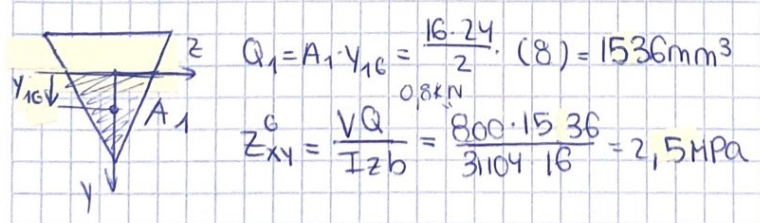 Z
Y1G
A1
Y
Q1 = A1 · Y1G = 16·24/2 · (8) = 1536mm³
0,8kN
Z^G_XY = VQ/Izb = 800·1536/31104·16 = 2,5MPa